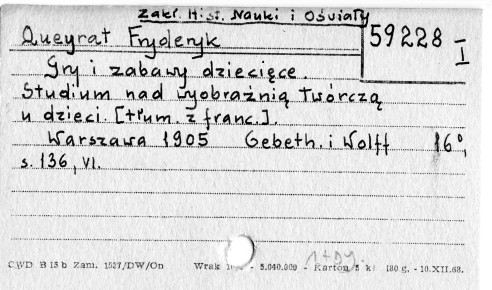 Zakł. Hist. Nauki i Oświaty
Queyrat Fryderyk
59228
I
Gry i zabawy dziecięce.
Studium nad wyobraźnią twórczą
u dzieci. [tłum. z franc.].
Warszawa 1905 Gebeth. i Wolff 16°,
s. 136, VI.
1+DY.
CWD B 15 b Zam. 1537/DW/On Wrak - 5.040.000 - Karton 5 kl 180 g. - 10.XII.63.